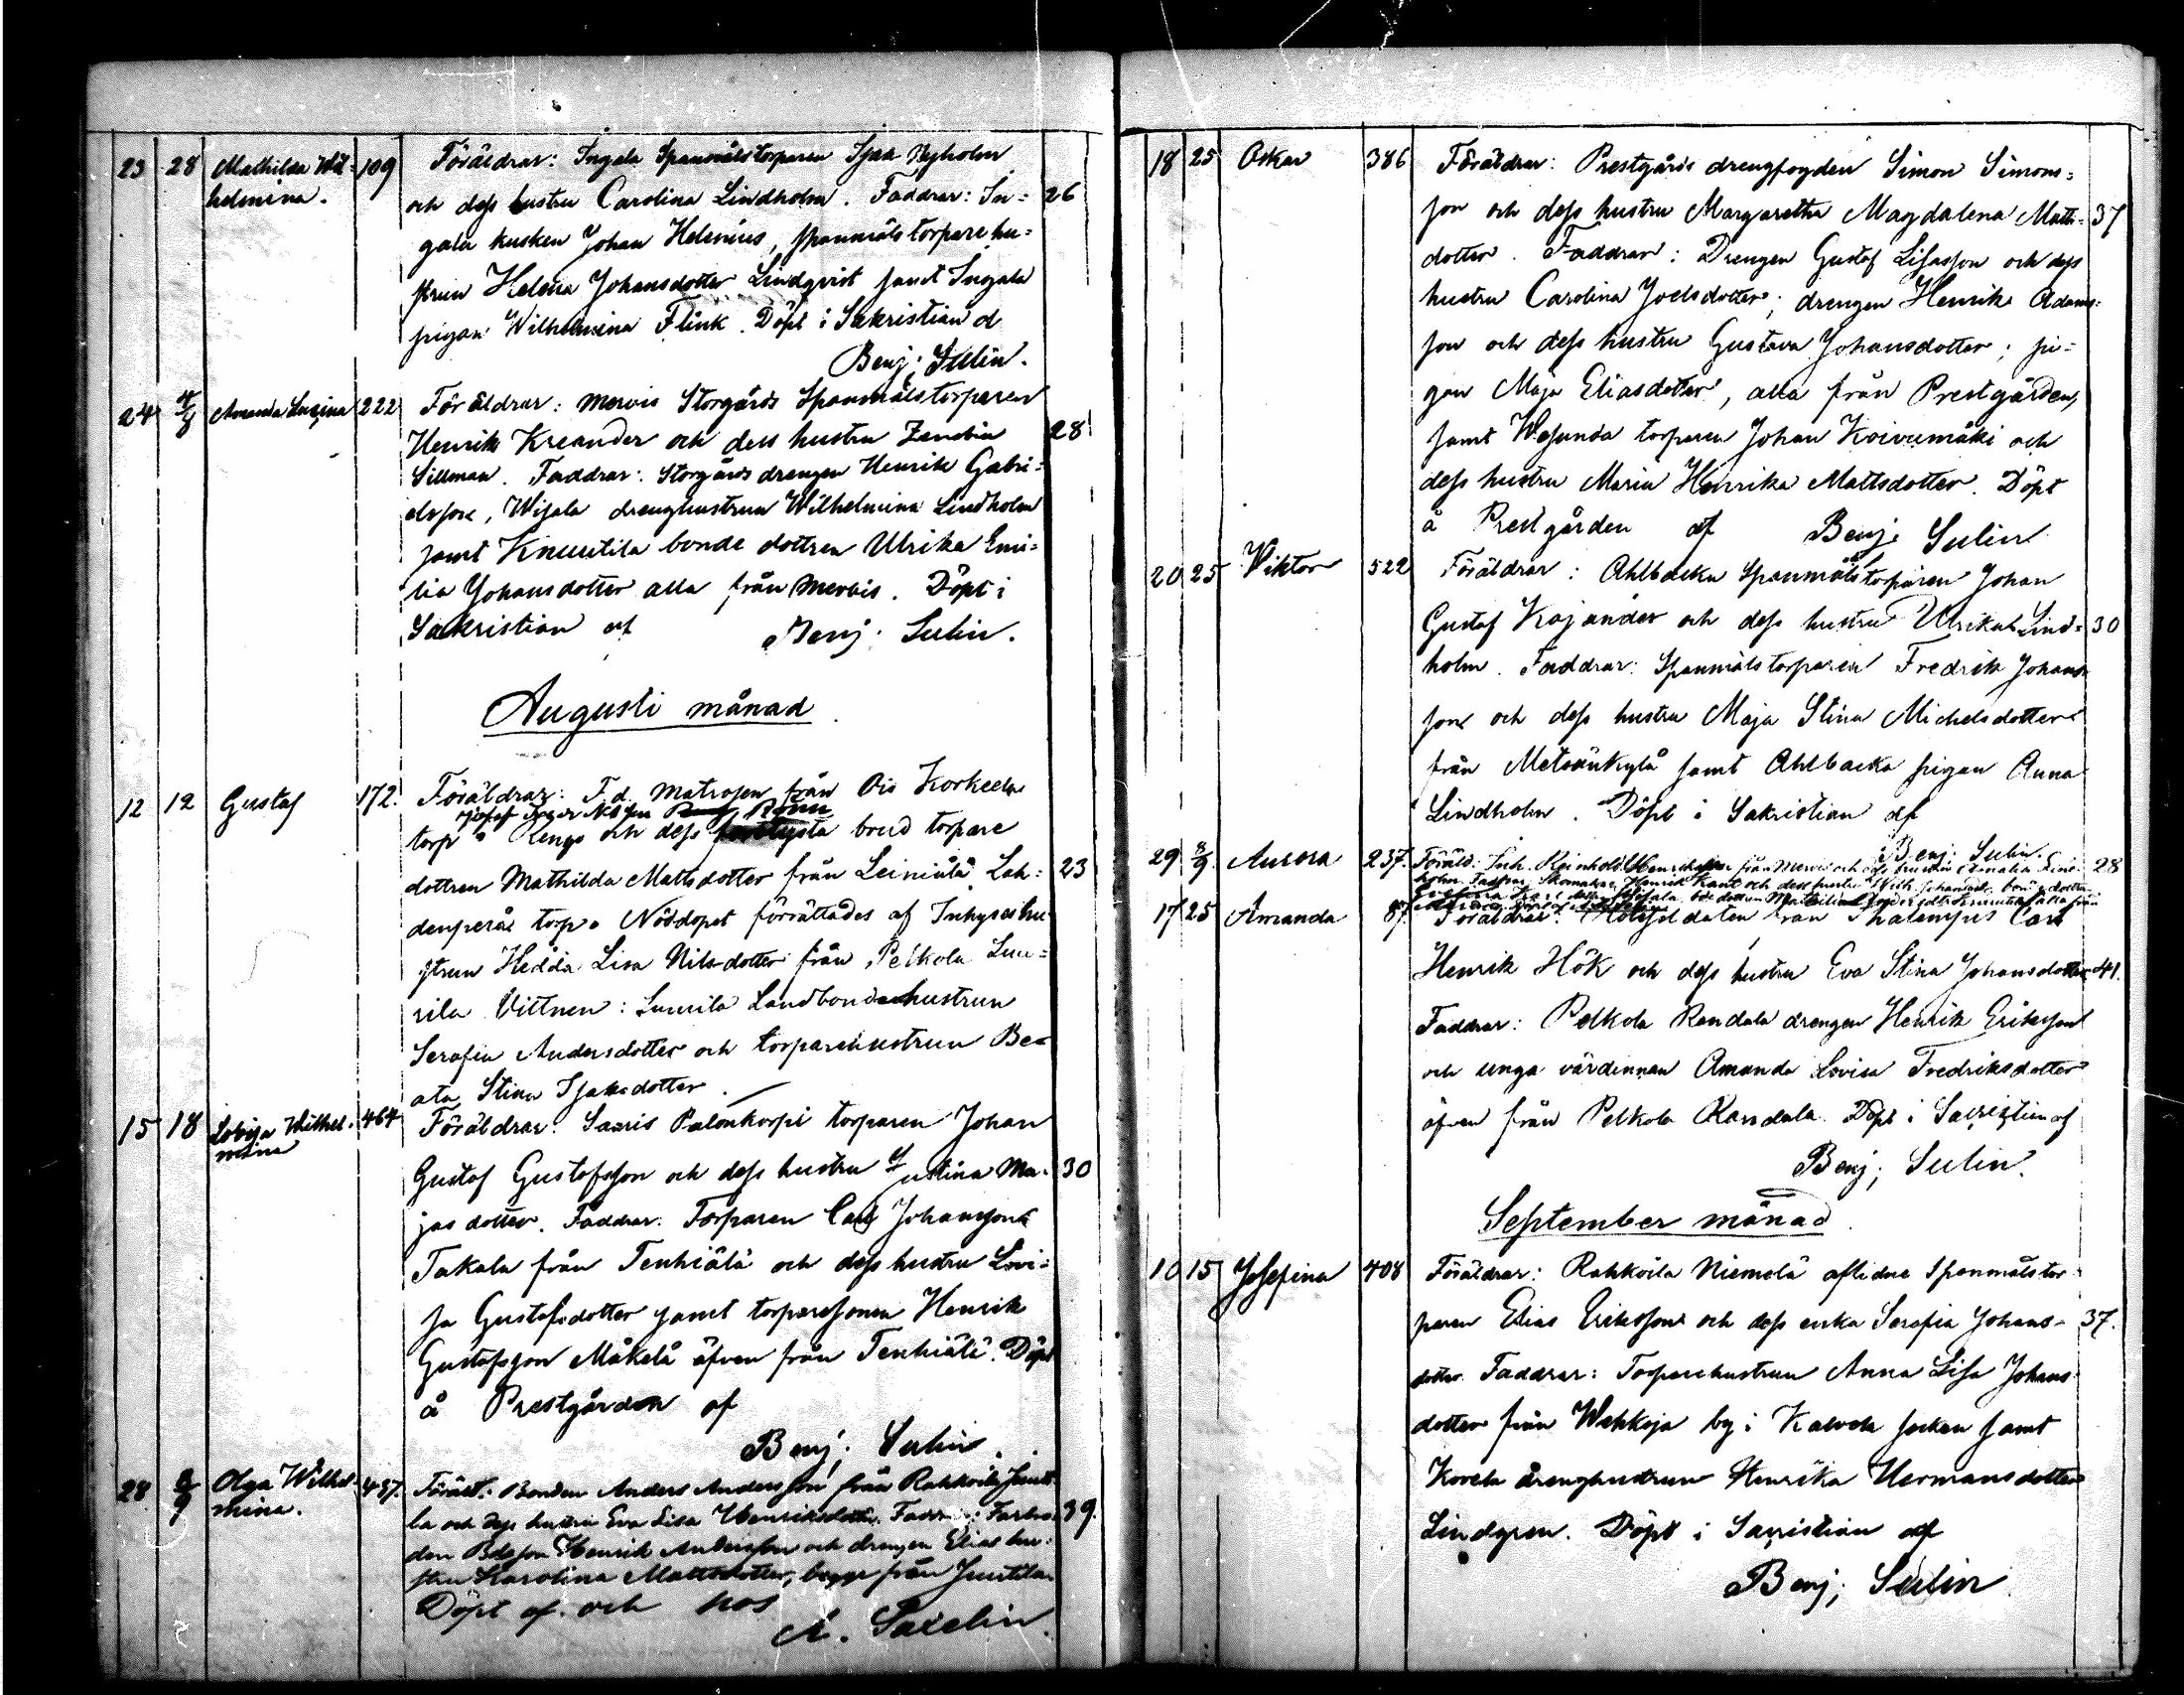 23 28 Mathilda Wil= 109 Föräldrar: Ingala Spanmålstorparen Isak Nyholm
helmina. och dess hustru Carolina Lindholm. Faddrar: In= 26
gala kusken Johan Helenius, spanmålstorparehu=
strun Helena Johansdotter Lindqvist samt Ingala
pigan Wilhelmina Flink. Döpt i Sakristian af
Benj; Sulin.
24 4/8 Amanda 222 Föräldrar: Mervis Storgårds Spanmålstorparen
Henrik Kreander och dess hustru Zenobia 28
Sillman. Faddrar: Storgårds drengen Henrik Gabri=
elsson, Wijala drenghustrun Wilhelmina Lindholm
samt Knuutila bonde dottren Ulrika Emi=
lia Johansdotter alla från Mervis. Döpt i
Sakristian af Benj. Sulin.
Augusti månad
12 12 Gustaf 172. Föräldrar: F.d. Matrosen från Ois Korkeela
torp och dess brud torpare
dottren Mathilda Mattsdotter från Leiniälä Lah= 23
denperä torp. Nöddopet förrättades af Inhyseshu=
strun Hedda Lisa Nilsdotter från Pelkola Luu=
rila Vittnen: Luurila Landbondehustrun
Serafia Andersdotter och torparehustrun Be=
ata Stina Isaksdotter.
15 18 Lovisa Wilhel= 464 Föräldrar: Saaris Palonkorpi torparen Johan
mina Gustaf Gustafsson och dess hustru Justina Ma= 30
jasdotter. Faddrar: Torparen Carl Johansson
Takala från Tenhiälä och dess hustru Lovi=
sa Gustafsdotter samt torparesonen Henrik
Gustafsson Mäkelä äfven från Tenhiälä. Döpt
å Prestgården af
Benj; Sulin.
28 8/9 Olga Wilhel= 437. Föräld.: Bonden Anders Andersson från Rahkoila Juuti
mina. la och dess hustru Eva Lisa Henriksdotter. Faddr.: Farbro= 39.
den Bdeson Henrik Andersson och drengen Elias hu=
strun Karolina Mattsdotter, begge från Juutila
Döpt af och hos
A. Saxelin.
18 25 Oskar 386 Föräldrar: Prestgårds drengfogden Simon Simons=
son och dess hustru Margaretha Magdalena Matts= 37
dotter. Faddrar: Drengen Gustaf Lisasson och dess
hustru Carolina Joelsdotter; drengen Henrik Adams=
son och dess hustru Gustava Johansdotter; pi=
gan Maja Eliasdotter, alla från Prestgården,
samt Wesunda torparen Johan Koivumäki och
dess hustru Maria Henrika Mattsdotter. Döpt
å Prestgården af Benj; Sulin
20 25 Viktor 522 Föräldrar: Ahlbacka Spanmålstorparen Johan
Gustaf Kajander och dess hustru Ulrika Lind= 30
holm. Faddrar: Spanmålstorparen Fredrik Johans=
son och dess hustru Maja Stina Michelsdotter
från Metsänkylä samt Ahlbacka pigan Anna
Lindholm. Döpt i Sakristian af
Benj; Sulin.
29 8/9 Aurora 237. Föräld: Inh. Reinhold Henriksson från Mervis och dess hustru Amalia Lind= 28
holm. Faddrar: Skomakare Henrik Kant och dess hustru Wilh. Johansdr.
17 25 Amanda 87. Föräldrar: från Carl
Henrik Hök och dess hustru Eva Stina Johansdotter 41.
Faddrar: Pelkola Randala drengen Henrik Eriksson
och unga värdinnan Amanda Lovisa Fredriksdotter
äfven från Pelkola Randala. Döpt i Sacristian af
Benj; Sulin.
September månad.
10 15 Josefina 408 Föräldrar: Rahkoila Niemelä aflidne Spanmålstor=
paren Elias Eriksson och dess enka Serafia Johans= 37.
dotter. Faddrar: Torparehustrun Anna Lisa Johans=
dotter från Wehkoja by i Kalvola socken samt
Kovela drenghustrun Henrika Hermansdotter
Lindgren. Döpt i Sacristian af
Benj; Sulin